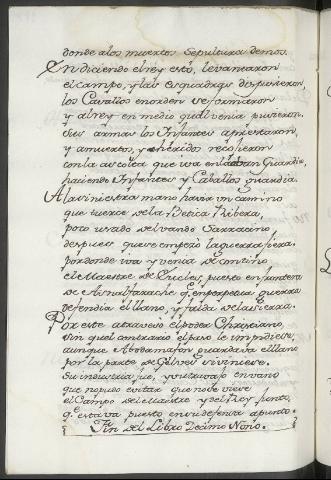 donde a los muertos sepultura demos.
En diciendo el rey esto, levantaron
el campo, y las esquadras dispusieron,
los Cavallos en orden se formaron
y al rey en medio qual venia pusieron.
sus armas los Infantes aprestaron,
y a muertos, y heridos recogieron
con la escolta que va en la Guardia
haciendo Infantes y Cavallos Guardia.
A la siniestra mano havia un camino
que tuerce de la Betica Ribera,
poco usado del vando Sarracino
despues que se empezó la guerra fiera.
por donde iva y venia de contino
el Maestre de Ucles, puesto en frontera
de Aznalfarache qe. en perpetua guerra
defendia el llano, y falda de la sierra.
Por este atraveso el poder Christiano,
sin que al contrario el paso le impidiese,
aunque Abdosmajon guardava el llano
por la parte de Gelves si viniese,
su industria fue, y su trabajo en vano
que no pudo evitar que no se viese
el Campo del Maestre y del Rey junto,
qe. estava puesto en su defensa a punto.
Fin del Libro Decimo Nono.